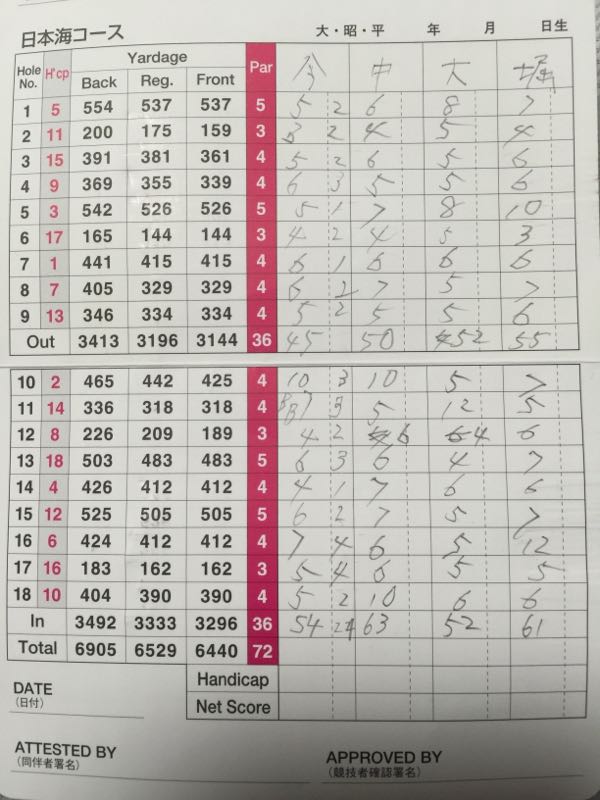 日本海コース 大・昭・平 年 月 日生
Hole No. H'cp Yardage Par 今 中 大 堀
Back Reg. Front
1 5 554 537 537 5 5 2 6 8 7
2 11 200 175 159 3 3 2 4 5 4
3 15 391 381 361 4 5 2 6 5 6
4 9 369 355 339 4 6 3 5 5 6
5 3 542 526 526 5 5 1 7 8 10
6 17 165 144 144 3 4 2 4 5 3
7 1 441 415 415 4 6 1 6 6 6
8 7 405 329 329 4 6 2 7 5 7
9 13 346 334 334 4 5 2 5 5 6
Out 3413 3196 3144 36 45 50 52 55
10 2 465 442 425 4 10 3 10 5 7
11 14 336 318 318 4 7 3 5 12 5
12 8 226 209 189 3 4 2 6 4 6
13 18 503 483 483 5 6 3 6 4 7
14 4 426 412 412 4 4 1 7 6 6
15 12 525 505 505 5 6 2 7 5 7
16 6 424 412 412 4 7 4 6 5 12
17 16 183 162 162 3 5 4 6 5 5
18 10 404 390 390 4 5 2 10 6 6
In 3492 3333 3296 36 54 63 52 61
Total 6905 6529 6440 72
Handicap
Net Score
DATE
(日付)
ATTESTED BY
(同伴者署名)
APPROVED BY
(競技者確認署名)